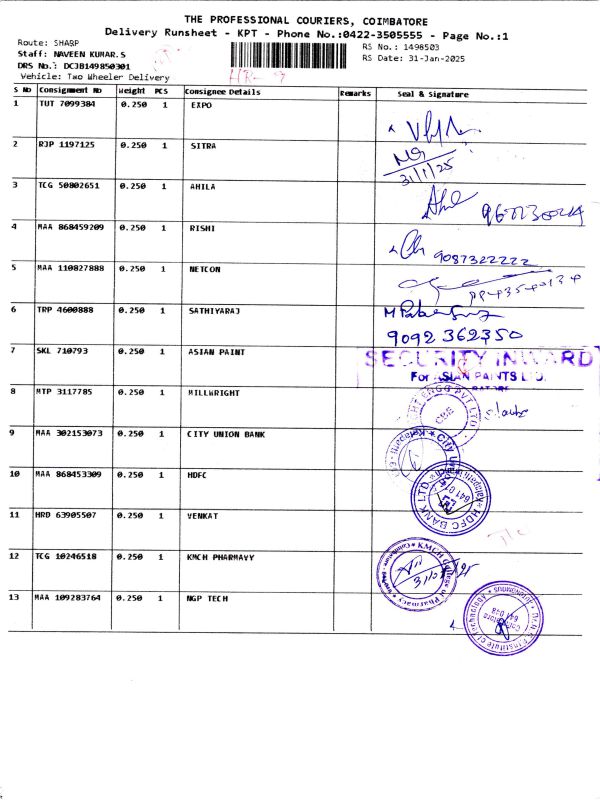 THE PROFESSIONAL COURIERS, COIMBATORE
Delivery Runsheet - KPT - Phone No.:0422-3505555 - Page No.:1
Route: SHARP
RS No.: 1498503
Staff: NAVEEN KUMAR.S
RS Date: 31-Jan-2025
DRS No.: DCJB149850301
Vehicle: Two Wheeler Delivery
S No Consignment No Weight PCS Consignee Details Remarks Seal & Signature
1 TUT 7099384 0.250 1 EXPO
2 RJP 1197125 0.250 1 SITRA
31/1/25
3 TCG 50802651 0.250 1 AHILA
4 MAA 868459209 0.250 1 RISHI
9087322222
5 MAA 110827888 0.250 1 NETCON
6 TRP 4600888 0.250 1 SATHIYARAJ
9092 362350
7 SKL 710793 0.250 1 ASIAN PAINT
SECURITY INWARD
For ASIAN PAINTS LTD.
8 MTP 3117785 0.250 1 MILLWRIGHT
9 MAA 302153073 0.250 1 CITY UNION BANK
10 MAA 868453309 0.250 1 HDFC
HDFC BANK LTD
11 HRD 63905507 0.250 1 VENKAT
12 TCG 10246518 0.250 1 KMCH PHARMAVY
KMCH College of Pharmacy
13 MAA 109283764 0.250 1 NGP TECH
Institute of Technology